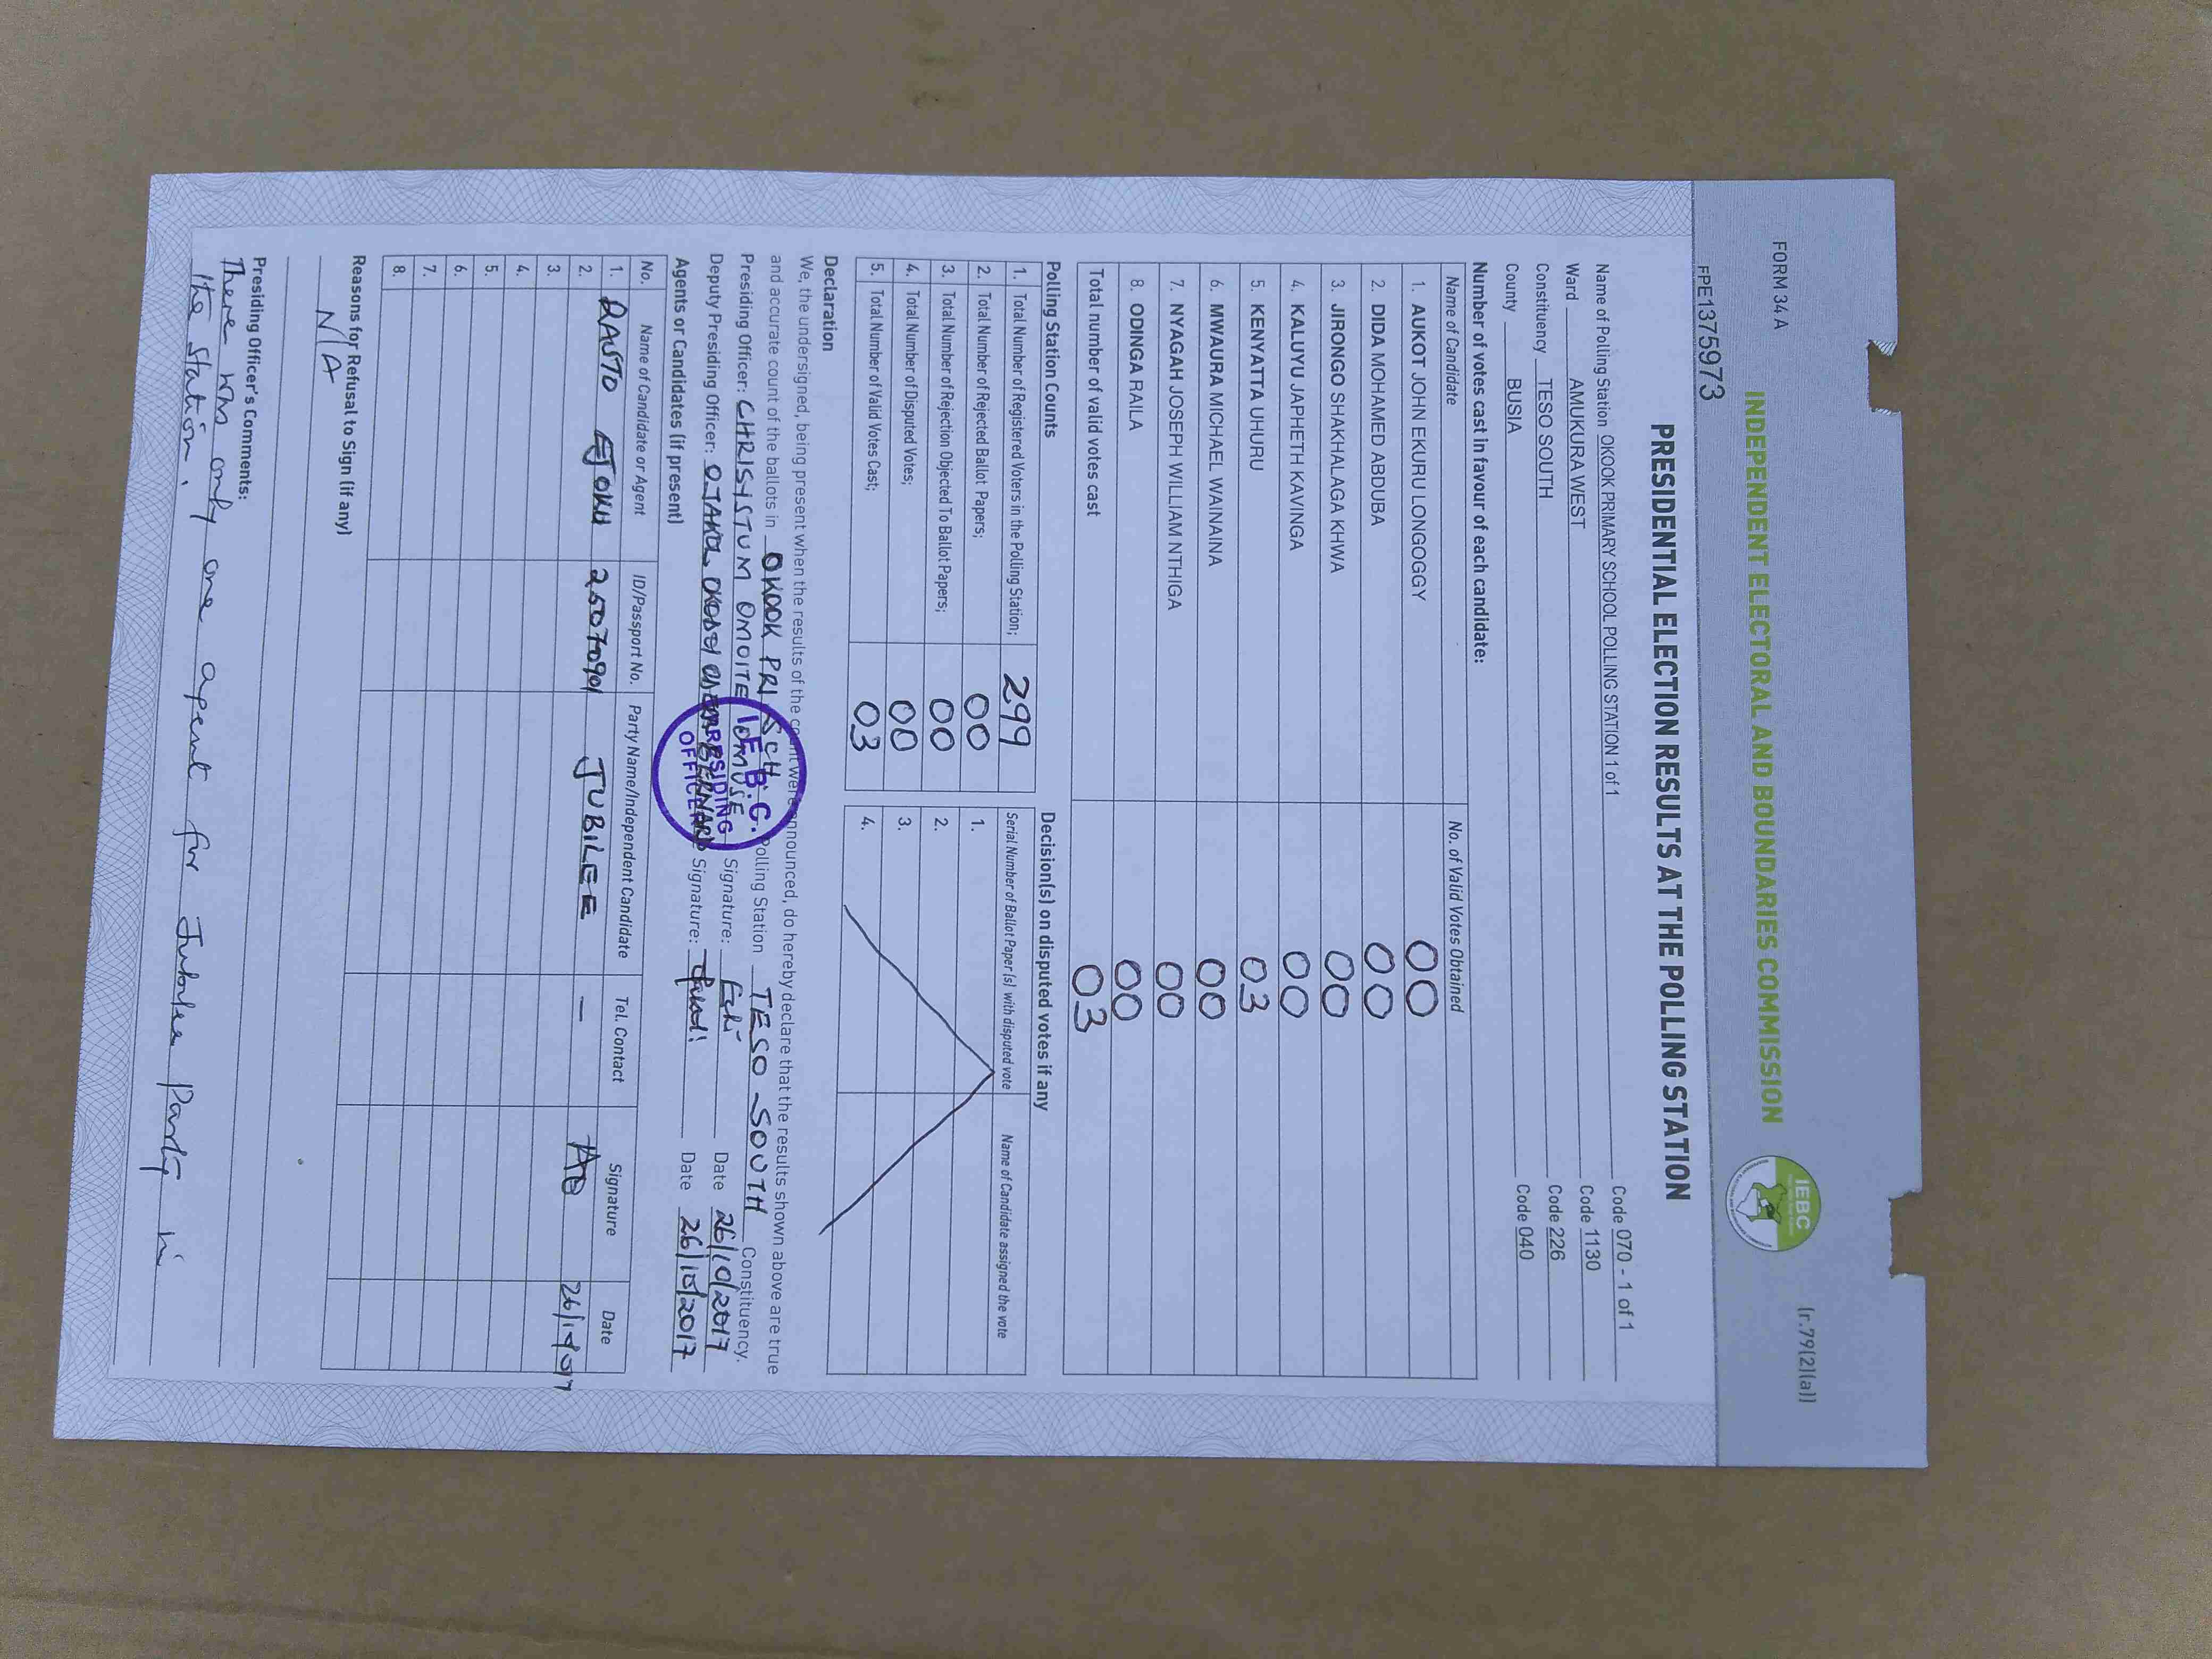 FORM 34 A
(r.79(2)(a))
INDEPENDENT ELECTORAL AND BOUNDARIES COMMISSION
IEBC
FPE1375973
PRESIDENTIAL ELECTION RESULTS AT THE POLLING STATION
Name of Polling Station OKOOK PRIMARY SCHOOL POLLING STATION 1 of 1 Code 070 - 1 of 1
Ward AMUKURA WEST Code 1130
Constituency TESO SOUTH Code 226
County BUSIA Code 040
Number of votes cast in favour of each candidate:
Name of Candidate No. of Valid Votes Obtained
1. AUKOT JOHN EKURU LONGOGGY 00
2. DIDA MOHAMED ABDUBA 00
3. JIRONGO SHAKHALAGA KHWA 00
4. KALUYU JAPHETH KAVINGA 00
5. KENYATTA UHURU 03
6. MWAURA MICHAEL WAINAINA 00
7. NYAGAH JOSEPH WILLIAM NTHIGA 00
8. ODINGA RAILA 00
Total number of valid votes cast 03
Polling Station Counts
1. Total Number of Registered Voters in the Polling Station; 299
2. Total Number of Rejected Ballot Papers; 00
3. Total Number of Rejection Objected To Ballot Papers; 00
4. Total Number of Disputed Votes; 00
5. Total Number of Valid Votes Cast; 03
Decision(s) on disputed votes if any
Serial Number of Ballot Paper (s) with disputed vote Name of Candidate assigned the vote
1.
2.
3.
4.
Declaration
We, the undersigned, being present when the results of the count were announced, do hereby declare that the results shown above are true
and accurate count of the ballots in OKOOK PRI SCH Polling Station TESO SOUTH Constituency.
Presiding Officer: OMOITE Signature: Date 26/10/2017
Deputy Presiding Officer: Signature: Date 26/10/2017
I.E.B.C.
PRESIDING
OFFICER
Agents or Candidates (if present)
No. Name of Candidate or Agent ID/Passport No. Party Name/Independent Candidate Tel. Contact Signature Date
1. 25070901 JUBILEE —
2.
3.
4.
5.
6.
7.
8.
Reasons for Refusal to Sign (if any)
N/A
Presiding Officer's Comments:
There was only one agent for Jubilee Party in
the station.